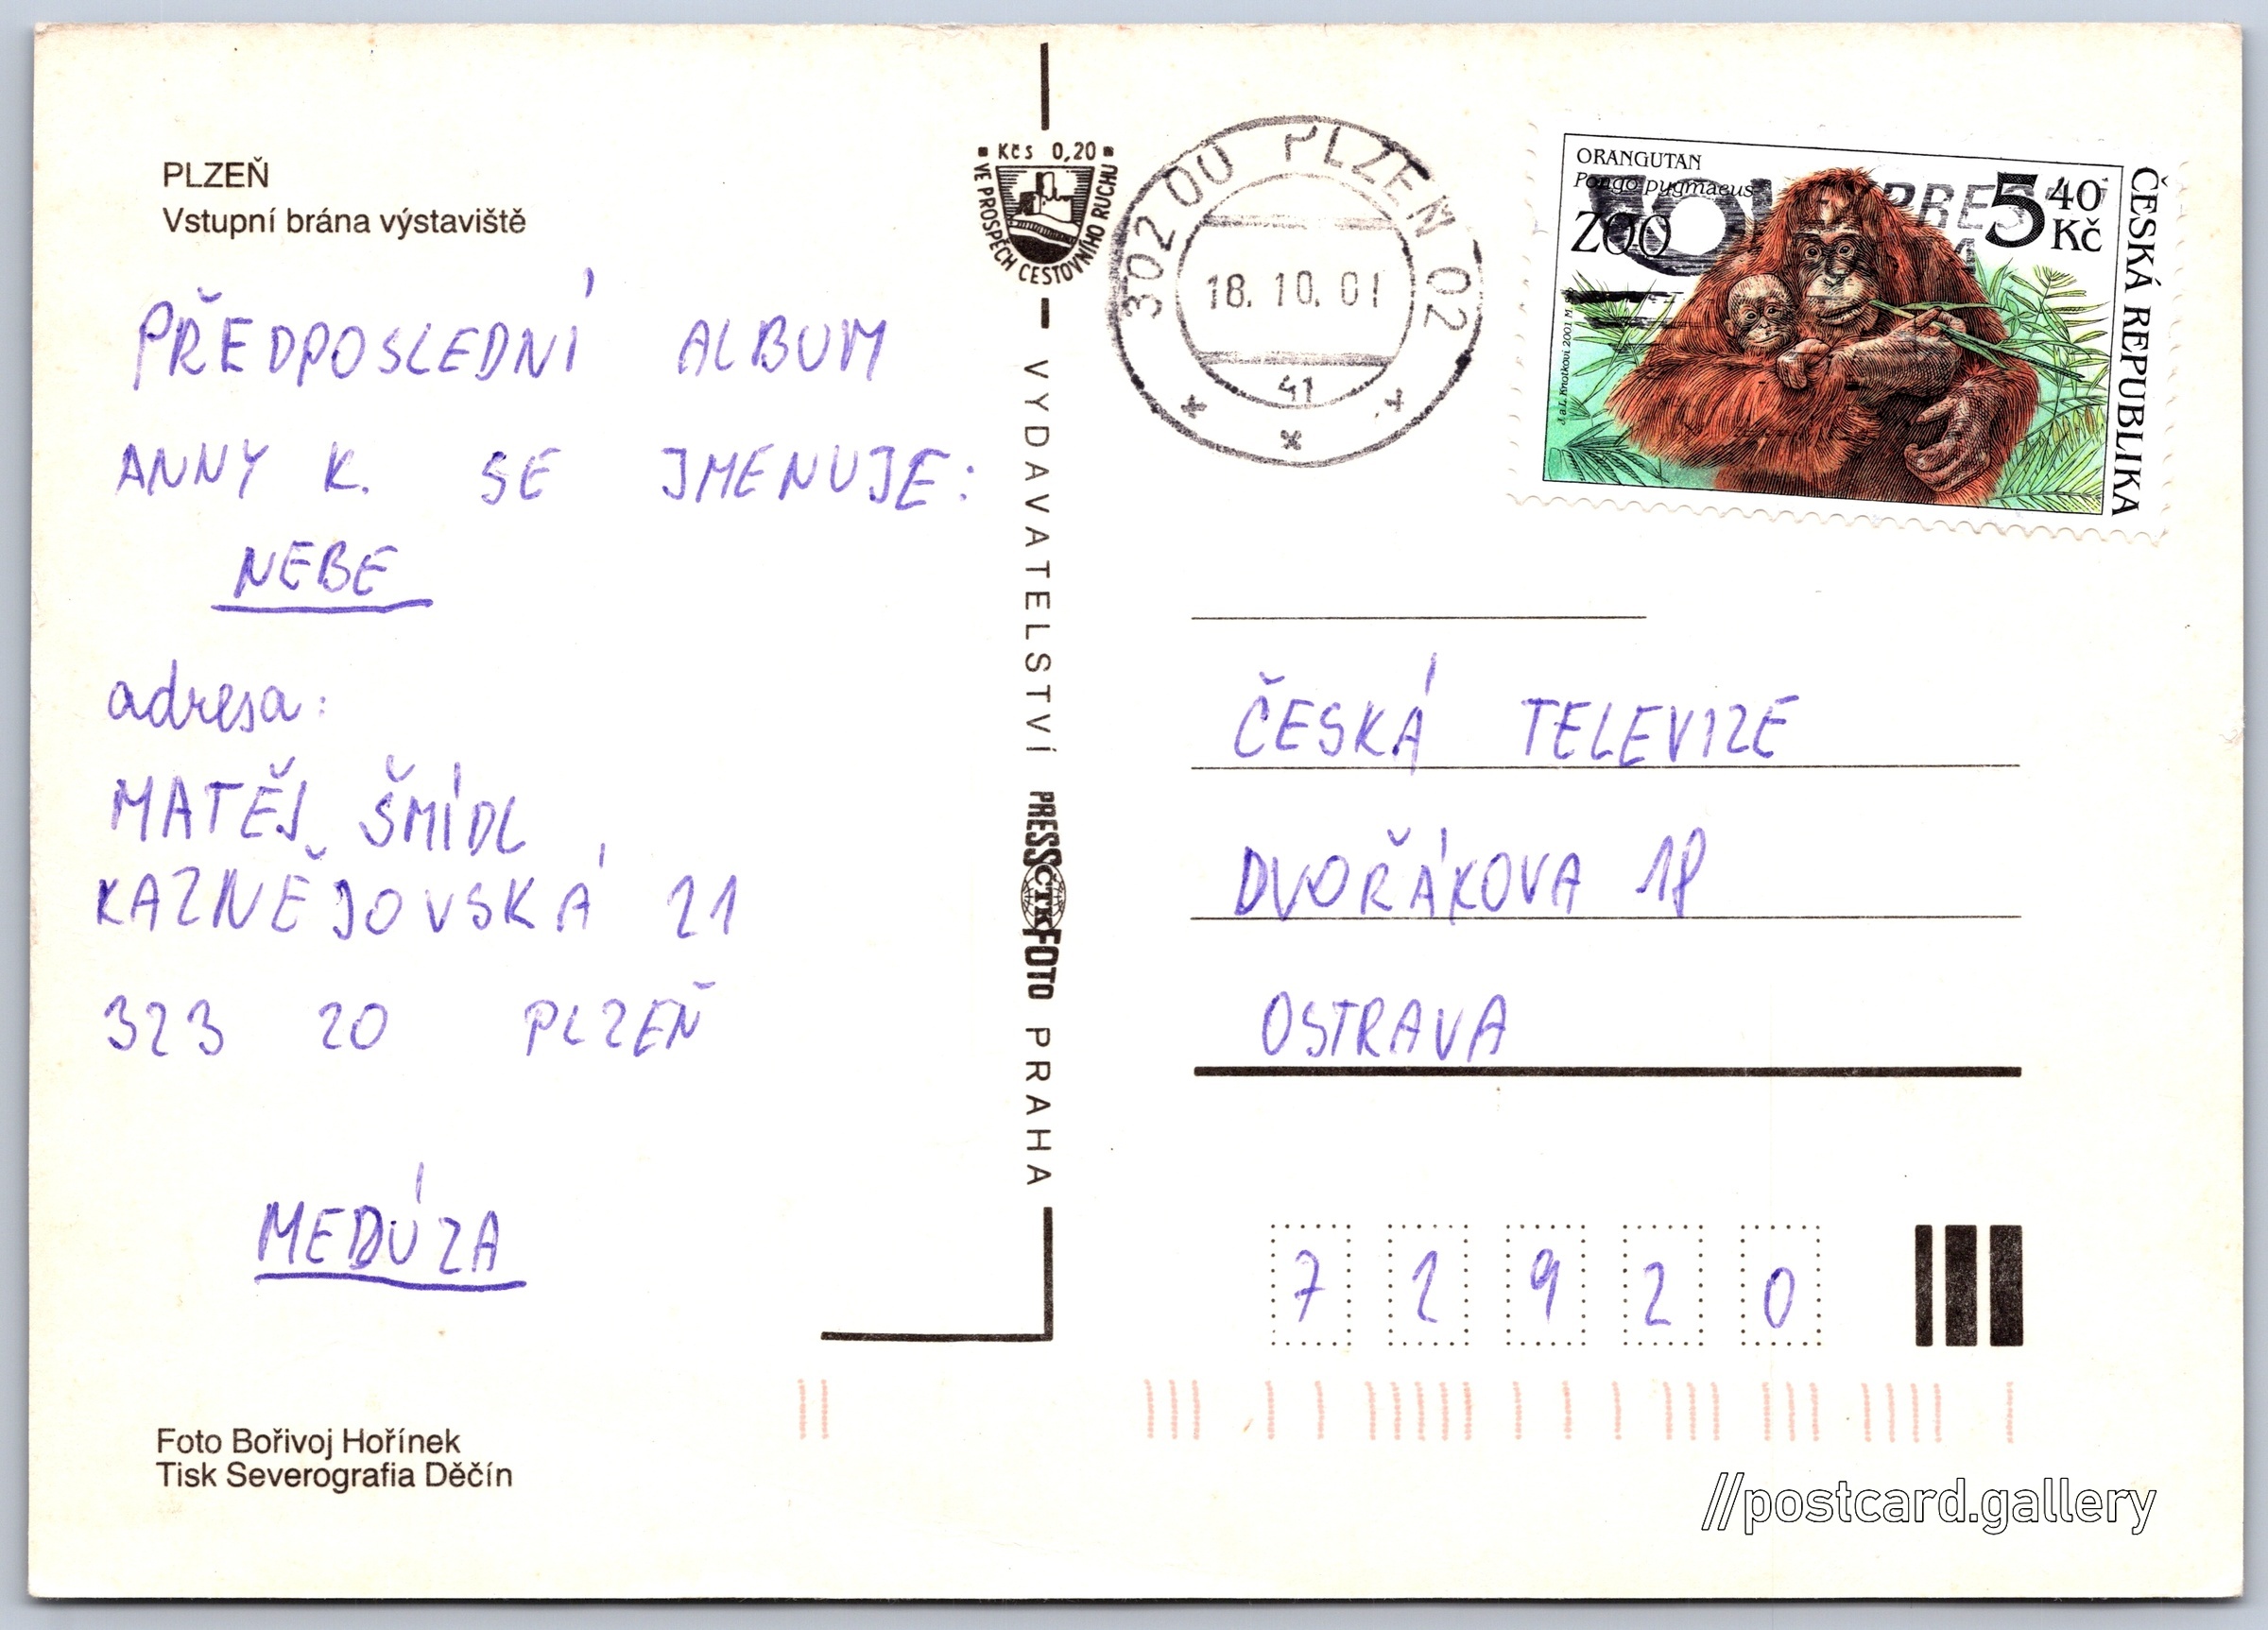 PLZEŇ
Vstupní brána výstaviště
PŘEDPOSLEDNÍ ALBUM
ANNY K. SE JMENUJE:
NEBE
adresa:
MATĚJ ŠMÍDL
KAZNĚJOVSKÁ 21
323 20 PLZEŇ
MEDÚZA
Foto Bořivoj Hořínek
Tisk Severografia Děčín
Kčs 0,20
VE PROSPĚCH CESTOVNÍHO RUCHU
VYDAVATELSTVÍ PRESSČTKFOTO PRAHA
302 00 PLZEŇ 02
18.10.01
41
ORANGUTAN
Pongo pygmaeus
ZOO
5 40 Kč
ČESKÁ REPUBLIKA
J. a L. Knotkovi 2001 M.
ČESKÁ TELEVIZE
DVOŘÁKOVA 18
OSTRAVA
7 2 9 2 0
//postcard.gallery